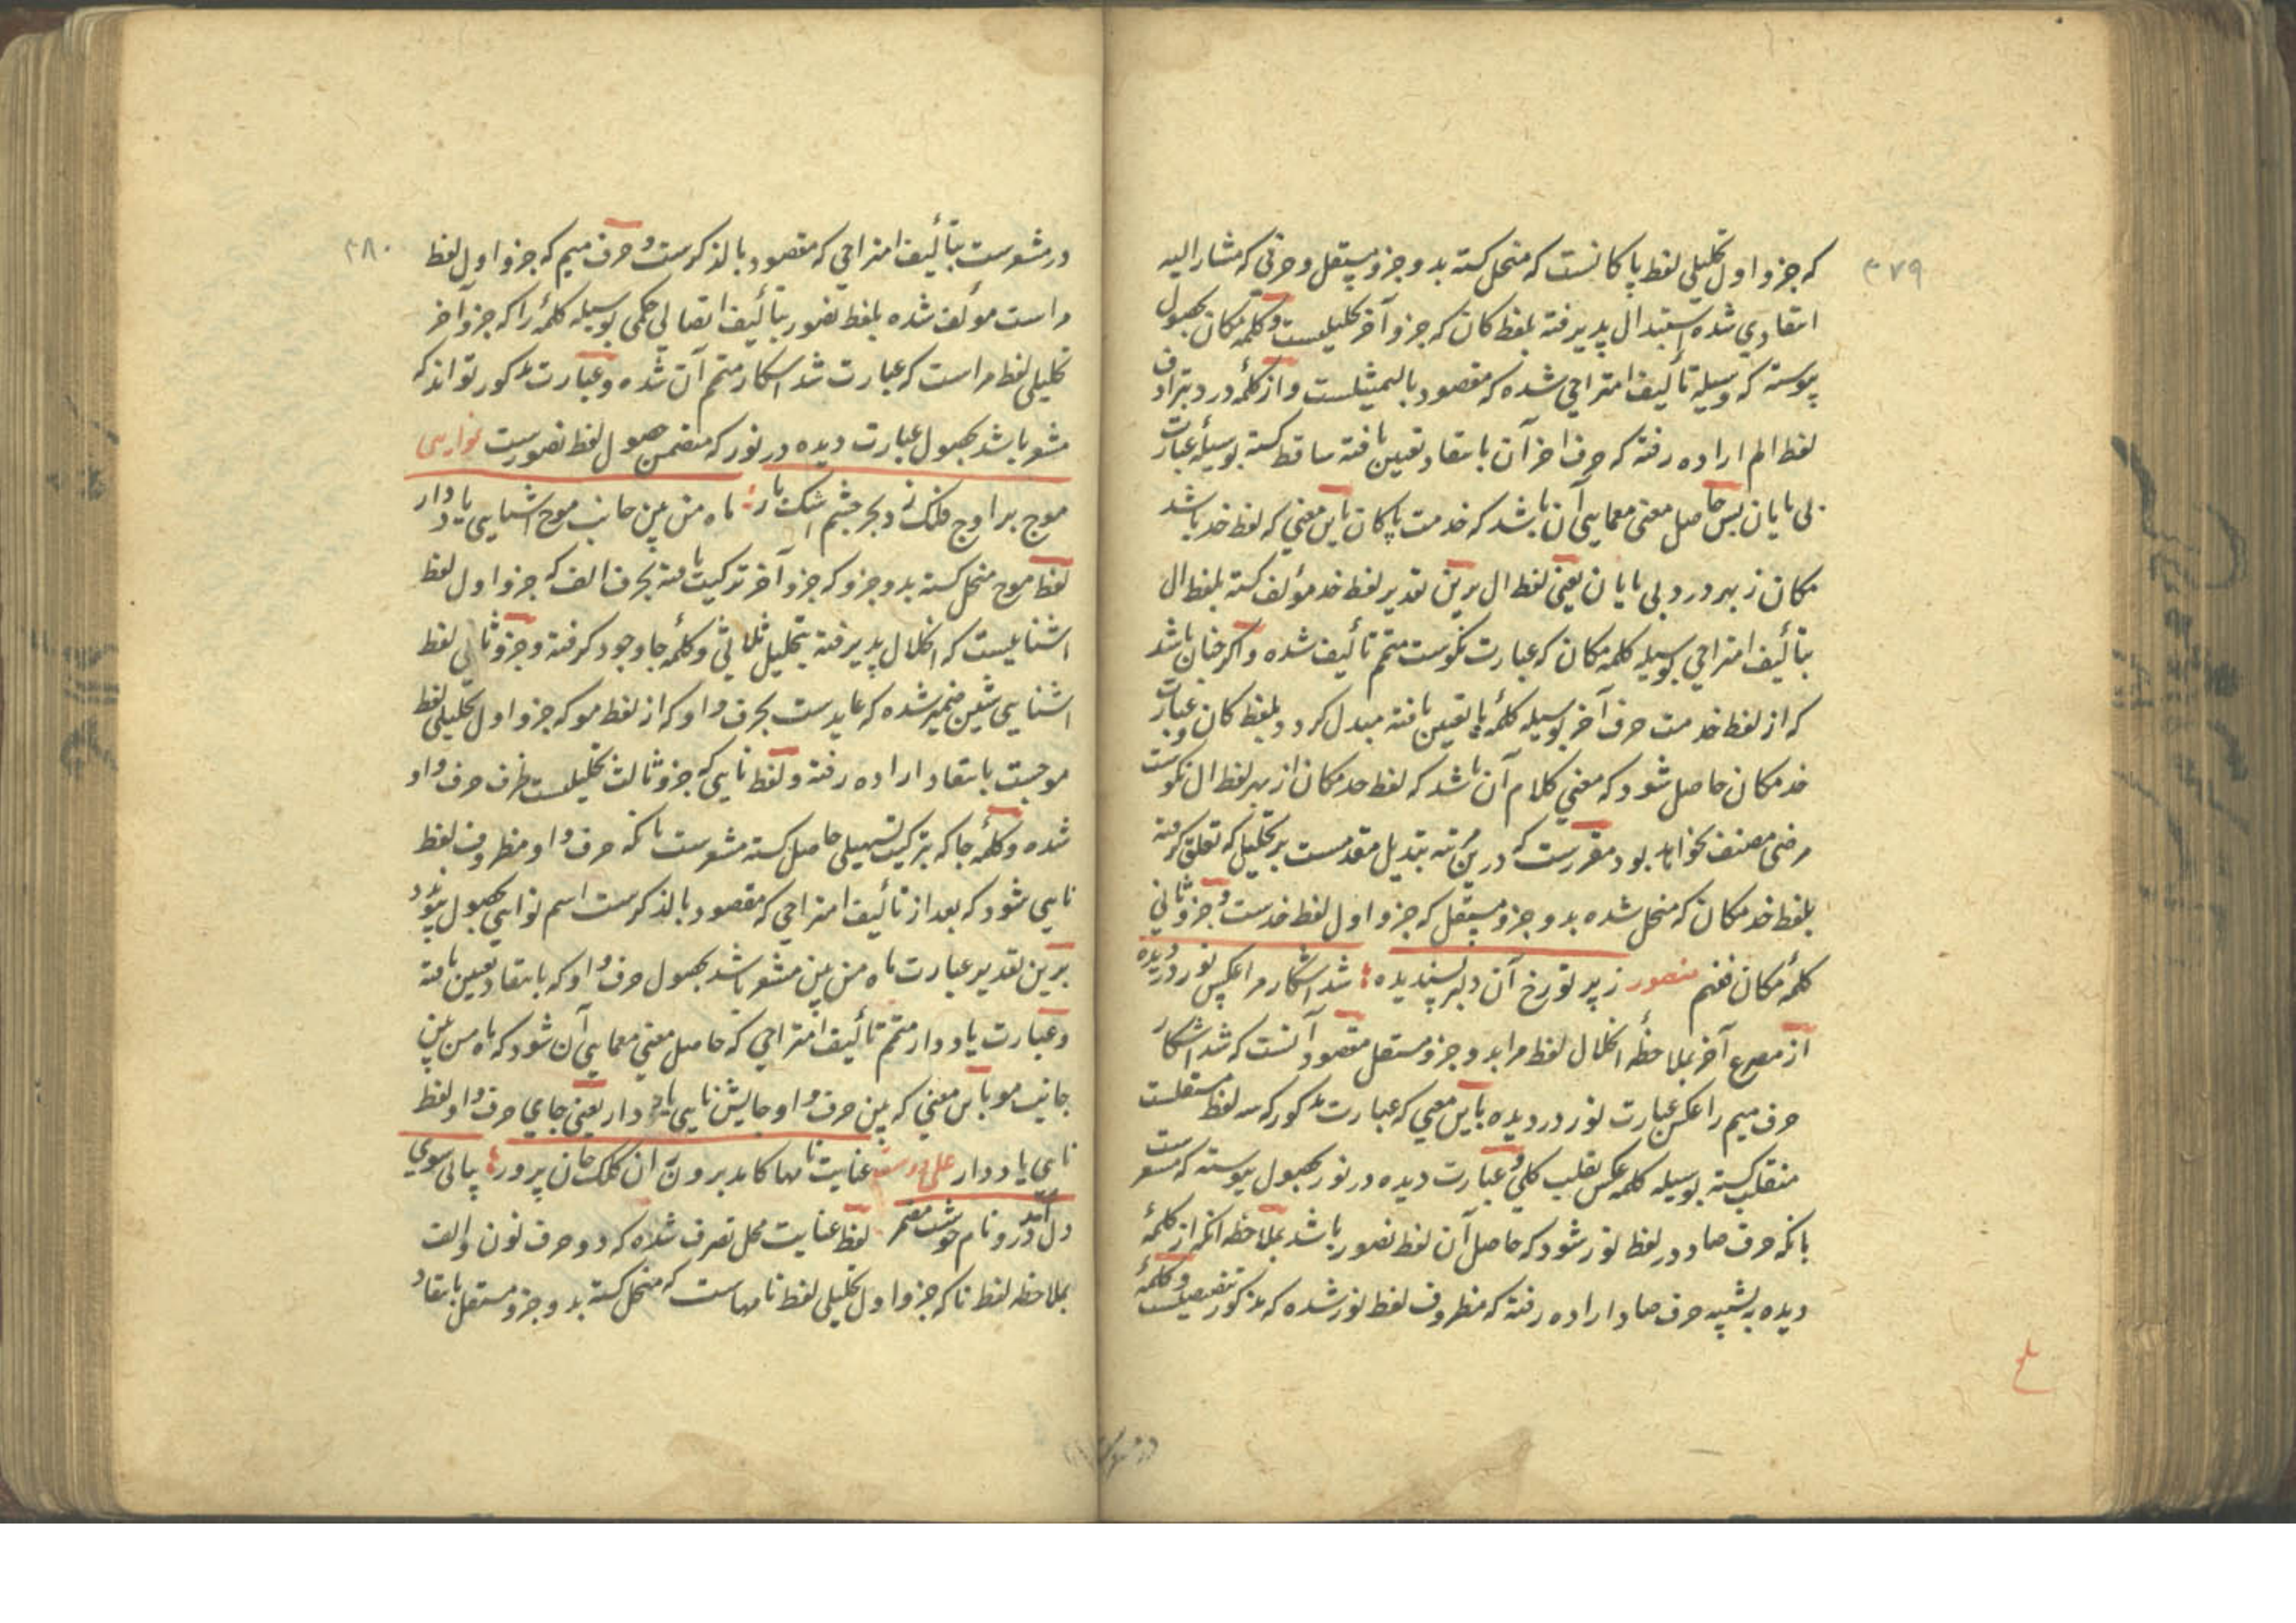 ۳۷۹
که جزو اول تحلیلی لفظ پاکانست که منحل کشته بدو جزو مستقل و حرفی که مشار الیه
انتقادی شده استبدال پذیرفته بلفظ کان که جزو آخر تحلیلیست و کلمه مکان بحصول
پیوسته که وسیله تألیف امتزاجی شده که مقصود بالتمثیلست و از کلمه درد بترادف
لفظ الم اراده رفته که حرف اخر آن بانتقاد تعین یافته ساقط کشته بوسیله عبارت
بی پایان پس حاصل معنی معمایی آن باشد که خدمت پاکان باین معنی که لفظ خد باشد
مکان ز بهر درد بی پایان یعنی لفظ ال برین تقدیر لفظ خد مؤلف کشته بلفظ ال
بتألیف امتزاجی بوسیله کلمه مکان که عبارت نکوست متمم تألیف شده و اکر چنان باشد
که از لفظ خدمت حرف آخر بوسیله کلمه پا تعین یافته مبدل کردد بلفظ کان و عبارت
خد مکان حاصل شود که معنی کلام آن باشد که لفظ خد مکان از بهر لفظ ال نکوست
مرضی مصنف نخواهد بود مقررست که درین مرتبه تبدیل مقدمست بر تحلیل که تعلق کرفته
بلفظ خد مکان که منحل شده بدو جزو مستقل که جزو اول لفظ خدست و جزو ثانی
کلمه مکان فنهم منصور ز پرتو رخ آن دلبر پسندیده شد اشکار مرا عکس نور در دیده
از مصرع آخر بملاحظه انحلال لفظ مرا بدو جزو مستقل مقصود آنست که شد اشکار
حرف میم را عکس عبارت نور در دیده باین معنی که عبارت مذکور که سه لفظ مستقلست
منقلب کشته بوسیله کلمه عکس بقلب کلی و عبارت دیده در نور بحصول پیوسته که مشعرست
بانکه حرف صاد در لفظ نور شود که حاصل آن لفظ نصور باشد بملاحظه انکه از کلمه
دیده به تشبیه حرف صاد اراده رفته که مظروف لفظ نور شده که مذکور تنصیصیست و کلمه
۳۸۰
در مشعرست بتألیف امتزاجی که مقصود بالذکرست و حرف میم که جزو اول لفظ
مراست مؤلف شده بلفظ نصور بتألیف اتصالی حکمی بوسیله کلمه را که جزو آخر
تحلیلی لفظ مراست که عبارت شد اشکار متمم آن شده و عبارت مذکور تواند که
مشعر باشد بحصول عبارت دیده در نور که متضمن حصول لفظ نصورست نوایی
موج بر اوج فلک زد بحر چشم اشک بار ماه من بین جانب موج اشنایی یاد دار
لفظ موج منحل کشته بدو جزو که جزو آخر ترکیب یافته بحرف الف که جزو اول لفظ
اشناییست که انحلال پذیرفته بتحلیل ثلاثی و کلمه جا وجود کرفته و جزو ثانی لفظ
اشنایی شین ضمیر شده که عایدست بحرف واو که از لفظ مو که جزو اول تحلیلی لفظ
موجست بانتقاد اراده رفته و لفظ نایی که جزو ثالث تحلیلیست ظرف حرف واو
شده و کلمه جا که بترکیب تسهیلی حاصل کشته مشعرست بانکه حرف واو مظروف لفظ
نایی شود که بعد از تألیف امتزاجی که مقصود بالذکرست اسم نوایی بحصول پیوندد
برین تقدیر عبارت ماه من بین مشعر باشد بحصول حرف واو که بانتقاد تعین یافته
و عبارت یاد دار متمم تألیف امتزاجی که حاصل معنی معمایی آن شود که ماه من بین
جانب مو باین معنی که بین حرف واو جایش نایی یاد دار یعنی جای حرف واو لفظ
نایی یاد دار عنایت نامها کاید برون آن کلک جان پرور پیاپی سوی
دل آمد درو نام خوشت مضمر لفظ عنایت محل تصرف شده که دو حرف نون و الف
بملاحظه لفظ نا که جزو اول تحلیلی لفظ نامهاست که منحل کشته بدو جزو مستقل بانتقاد